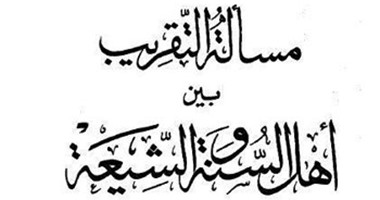 مسألة التقريب
بين
أهل السنة والشيعة